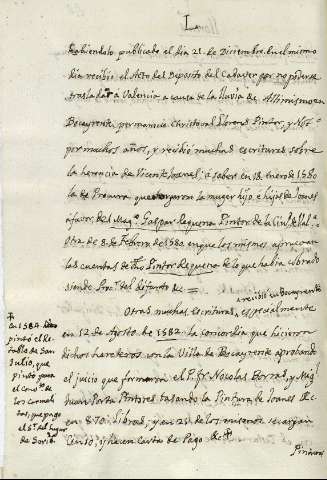 L
habiendolo publicado el dia 21 de Diciembre. En el mismo
dia recibió el Acto del Deposito del Cadaver por no poderse
trasladar a Valencia a causa de la lluvia &c. Assimismo en
Bocayrente permanecia Christoval Llorens Pintor, y Not.º
por muchos años, y recibió muchas escrituras sobre
la herencia de Vicente Joanes, á saber en 18. enero de 1580
la de Procura que otorgaron la muger, hijo, é hijas de Joanes
á favor del Mag.º Gaspar Requena Pintor de la Ciud. de Val.ª
Otra de 8 de Febrero de 1580 en que los mismos aprueban
las cuentas de dho Pintor Requena de lo que havia cobrado
siendo Pro.r del difunto &c =
recibió en Bocayrente
Otras muchas escrituras, especialmente
en 12 de Agosto de 1582 la concordia que hicieron
dichos herederos con la Villa de Bocayrente aprobando
el juicio que formaron el P. Fr. Nicolas Borras, y Mag.º
Juan Porta Pintores tasando la Pintura de Joanes &c.
en 870 libras; y en 25 de los mismos se cargan
Censo, y hacen carta de Pago &c +
Pintores
+
en 1584.
pintó el Re-
tablo de San
Julio, que
pintó para
el Conv.to de
los Carmeli-
tas, que pagó
el S.r del lugar
de Sorio.